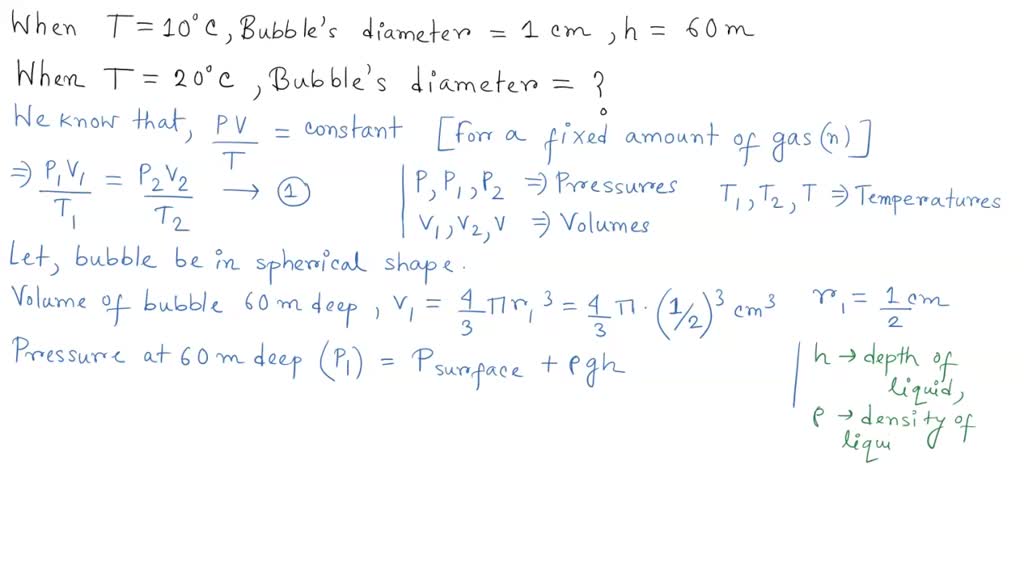 When T = 10°C, Bubble's diameter = 1 cm, h = 60 m
When T = 20°C, Bubble's diameter = ?
We know that, PV/T = constant [For a fixed amount of gas (n)]
⇒ P₁V₁/T₁ = P₂V₂/T₂ → ①
P, P₁, P₂ ⇒ Pressures T₁, T₂, T ⇒ Temperatures
V₁, V₂, V ⇒ Volumes
Let, bubble be in spherical shape.
Volume of bubble 60 m deep, V₁ = 4/3 πr₁³ = 4/3 π · (1/2)³ cm³ r₁ = 1/2 cm
Pressure at 60 m deep (P₁) = P surface + ρgh
h → depth of
liquid,
ρ → density of
liqu